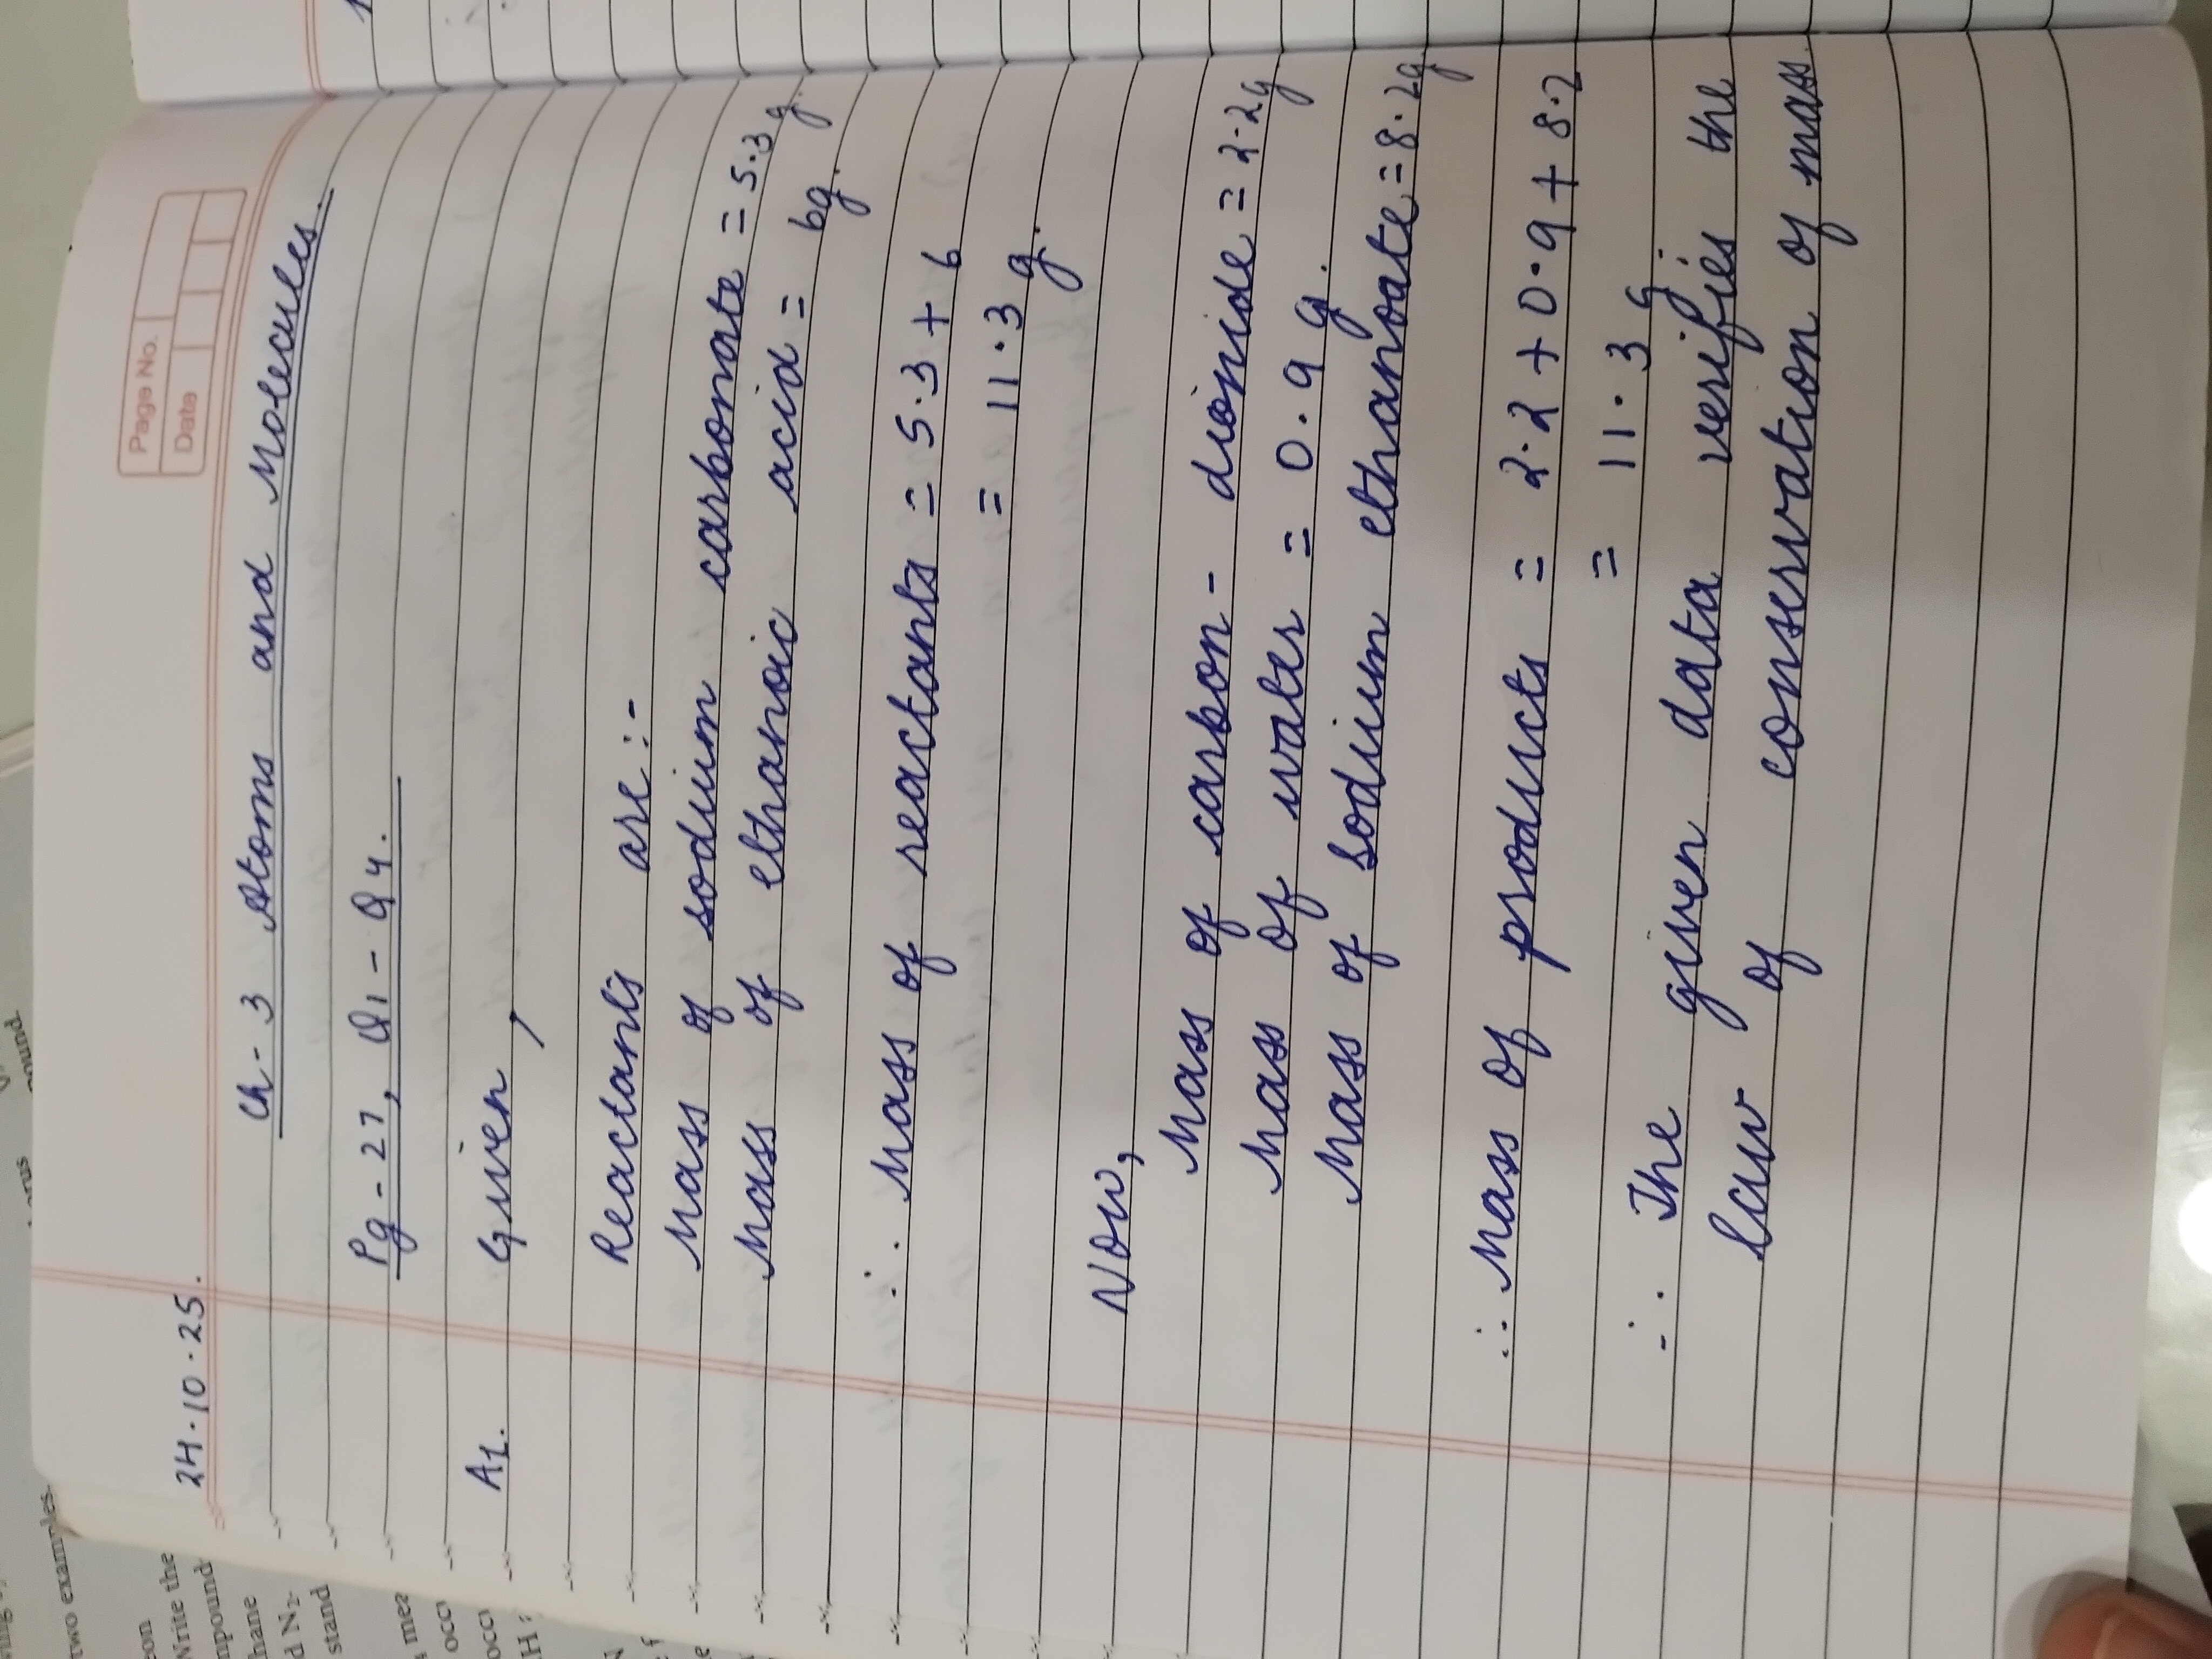 Page No.
Date
24.10.25.
Ch-3 Atoms and Molecules.
Pg-27, Q1-Q4.
A1. Given,
Reactants are:-
Mass of sodium carbonate = 5.3 g.
Mass of ethanoic acid = 6g.
∴ Mass of reactants = 5.3 + 6
= 11.3 g.
Now,
Mass of carbon-dioxide = 2.2g
Mass of water = 0.9 g.
Mass of sodium ethanoate = 8.2g
∴ Mass of products = 2.2 + 0.9 + 8.2
= 11.3 g.
∴ The given data verifies the
law of conservation of mass.
two examples.
Write the
mpound
hane
d N₂
stand